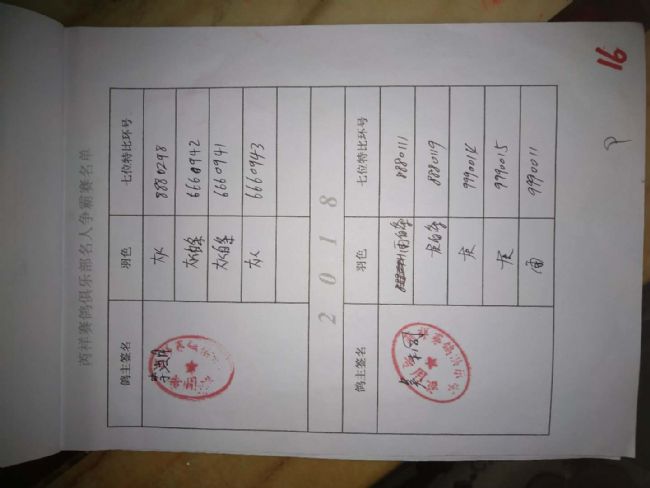 芮祥赛鸽俱乐部名人争霸赛名单
鸽主签名 羽色 七位特比环号
灰 8880298
灰白条 6660942
灰白条 6660941
灰 6660943
2018
鸽主签名 羽色 七位特比环号
雨白条 8880111
灰白条 8880119
灰 9990012
灰 9990015
雨 9990011
16